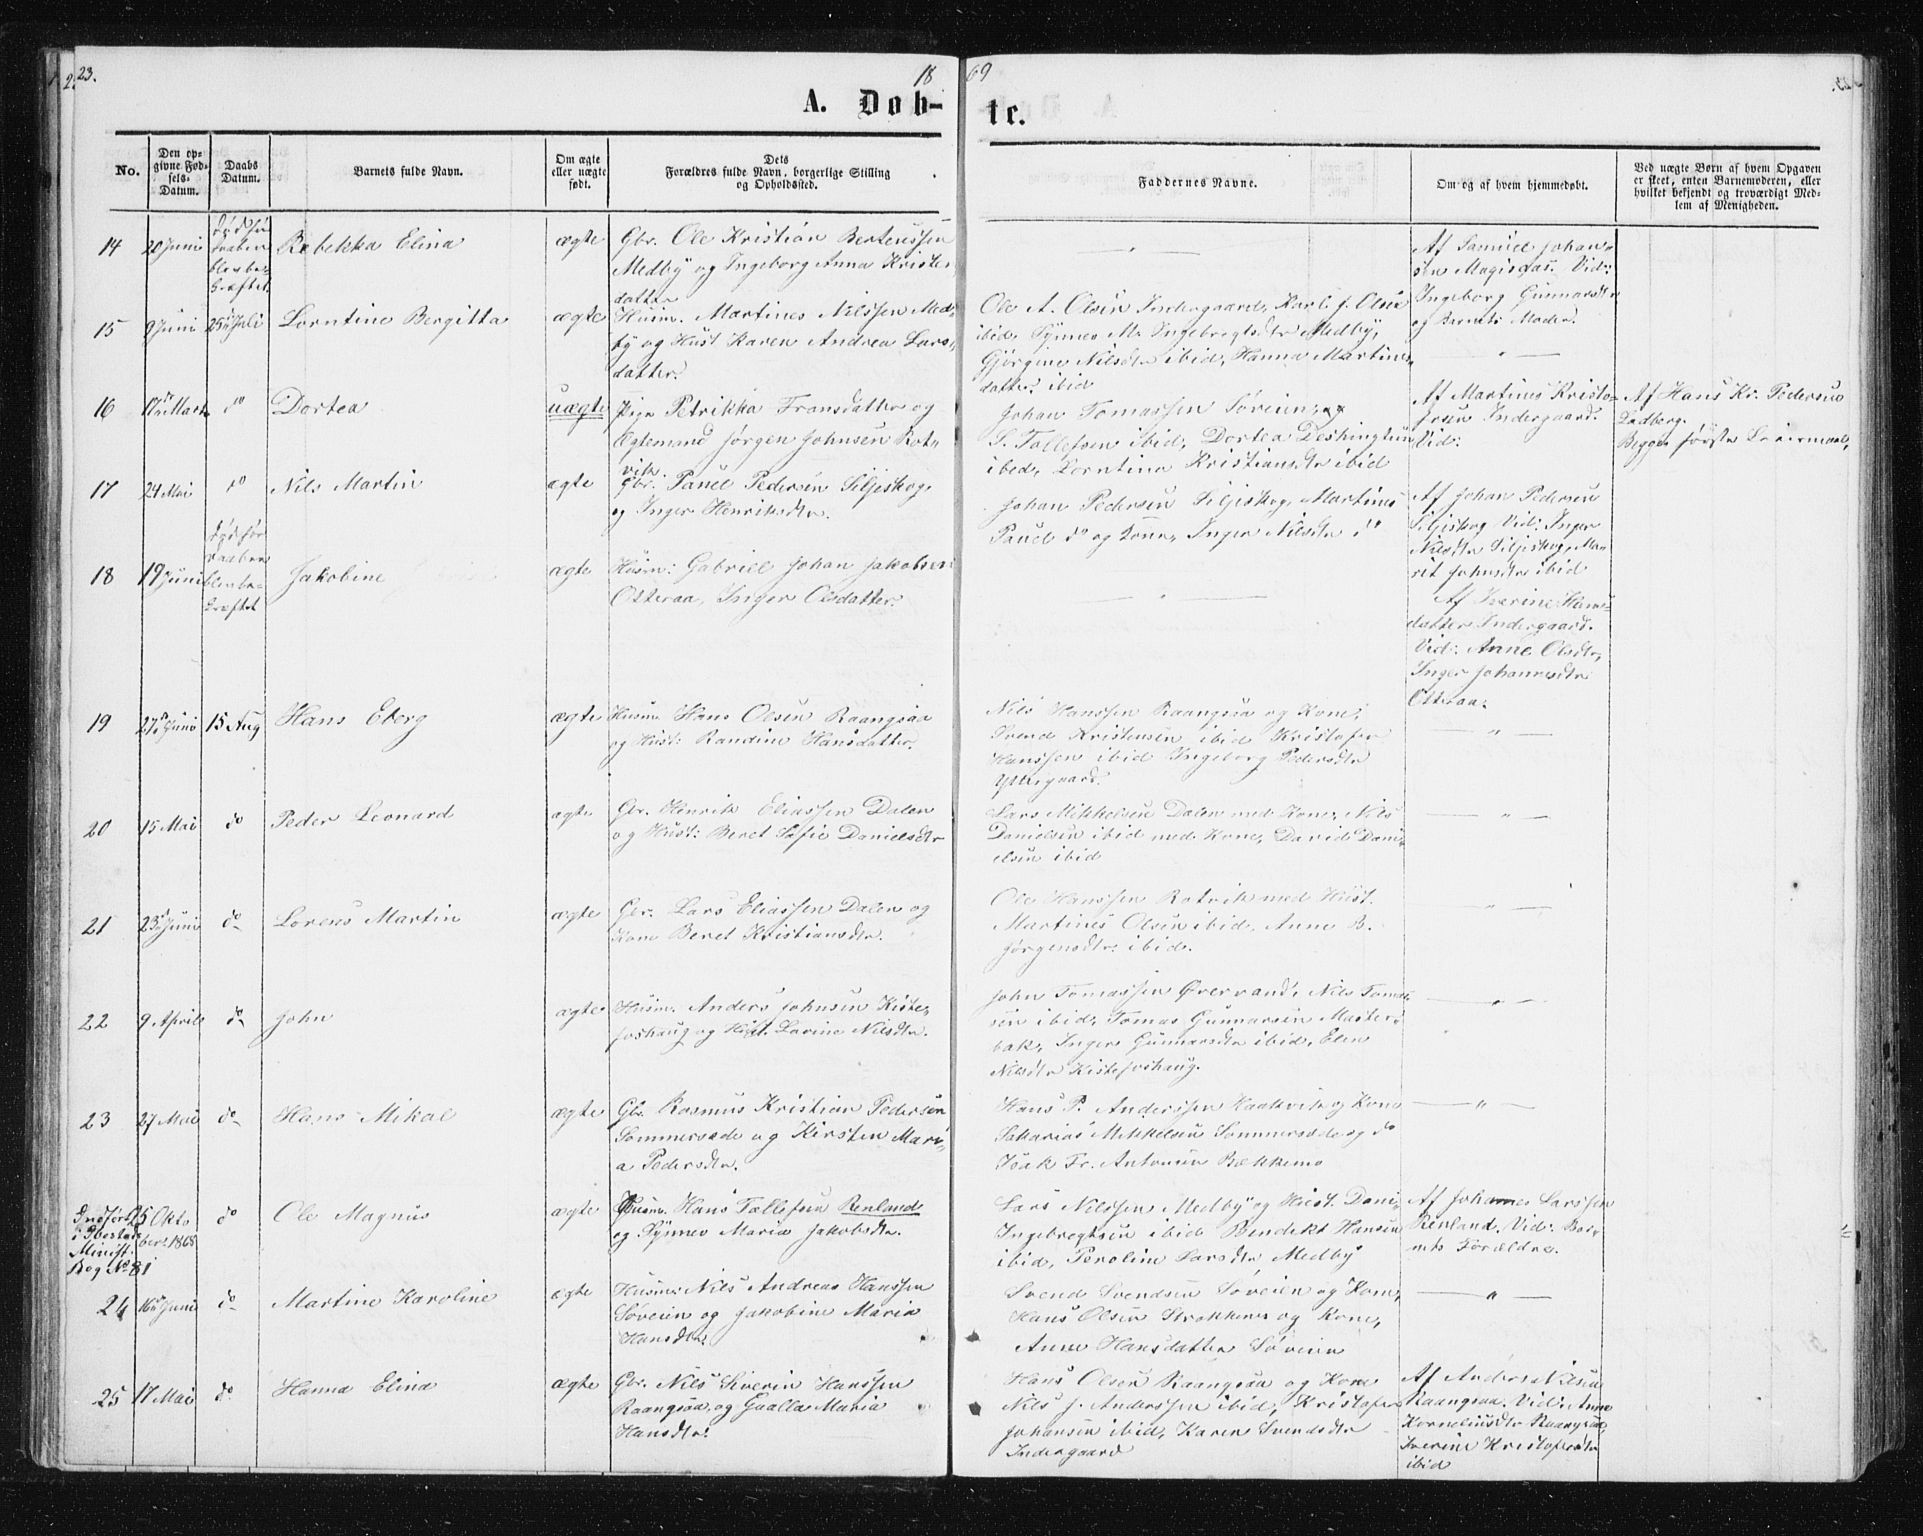 23.
18
69
A. Døb-
te.
No.
Den op-
givne Fød-
sels-
Datum.
Daabs
Datum.
Barnets fulde Navn.
Om ægte
eller uægte
født.
Dets
Forældres fulde Navn, borgerlige Stilling
og Opholdssted.
Faddernes Navne.
Om og af hvem hjemmedøbt.
Ved uægte Børn af hvem Opgaven
er skeet, enten Barnemoderen, eller
hvilket bekjendt og troværdigt Med-
lem af Menigheden.
14 20 Juni
Død før
Daaben
blev be-
kræftet
Rebekka Elina
ægte
Gbr. Ole Kristian Berteussen
Medby og Ingeborg Anna Kristens
datter
— " —
Af Samuel Johan-
sen Vid:
Ingeborg Gunnarsdtr
og Barnets Moder.
15
9 Juni
25 Juli
Lorntine Bergitta
ægte
Husm. Martines Nilssen Med-
by og Hust Karen Andrea Lars-
datter.
Ole A. Olsen Indergaard, Karl J. Olsen
ibid, Synnev M. Ingebregtsdtr Medby,
Gjørgine Nilsdtr ibid, Hanna Martins-
datter ibid
— " —
16
17 Marts
do
Dortea
uægte
Pige Petrikka Fransdatter og
Ægtemand Jørgen Johnsen Rot-
vik.
Johan Tomassen Søveien, og
S. Tollefsen ibid, Dortea
ibid, Lorntina Kristiansdtr ibid
Af Martines Kristo-
fersen Indergaard.
Vid:
Af Hans Kr. Pedersen
Ladberg.
Begges første Leiermaal.
17
24 Mai
do
Nils Martin
ægte
Gbr. Paul Pedersen Siljeskog,
og Inger Henriksdtr.
Johan Pedersen Siljeskog, Martines
Paul do og Kone, Inger Nilsdtr do
Af Johan Pedersen
Siljeskog Vid: Inger
Nilsdtr Siljeskog, Ma-
rit Johnsdtr ibid
18
19 Juni
Død før
Daaben
blev be-
kræftet
Jakobine
ægte
Husm: Gabriel Johan Jakobsen
Otteraa, Inger Olsdatter.
— " —
Af Iverine Hans-
datter Indergaard.
Vid: Anne Olsdtr,
Inger Johannesdtr
Otteraa.
19
27 Juni
15 Aug
Hans Eberg
ægte
Husm. Hans Olsen Raangsaa
og Hust: Randine Hansdatter.
Nils Hanssen Raangsaa og Kone,
Svend Kristensen ibid Kristofer
Hanssen ibid Ingeborg Pedersdtr
Yttergaard.
— " —
20
15 Mai
do
Peder Leonard
ægte
Gbr. Henrik Eliassen Dalen
og Hust: Beret Sofie Danielsdtr
Lars Mikkelsen Dalen med Kone, Nils
Danielsen ibid med Kone, David Dani-
elsen ibid
— " —
21
23 Juni
do
Lorens Martin
ægte
Gbr. Lars Eliassen Dalen og
Kone Beret Kristiansdtr.
Ole Hanssen Rotvik med Hust.
Martines Olsen ibid, Anne B.
Jørgensdtr ibid.
— " —
22
9 April
do
John
ægte
Husm. Anders Johnsen Kiste-
foshaug og Hust. Lavine Nilsdtr.
John Tomassen Øvervand, Nils Tomas-
sen ibid, Tomas Gunnarsen Master-
bak, Inger Gunnarsdtr ibid, Elen
Nilsdtr Kistefoshaug.
— " —
23
27 Mai
do
Hans Mikal
ægte
Gbr. Rasmus Kristian Pedersen
Sommersæde og Kirsten Mari-
a Pedersdtr.
Hans P. Anderssen Haakvik og Kone
Sakarias Mikkelsen Sommersæde og do
Isak Fr. Antonsen Bækkemo
— " —
Indført
i Ibestad
Minist.
Bog No 81
25 Okto
ber 1868
do
Ole Magnus
ægte
Husm. Hans Tollefsen Renland
og Synnev Maria Jakobsdtr.
Lars Nilssen Medby og Hust. Dani-
Ingebregtsen ibid Bendikt Hansen
ibid, Peroline Larsdtr Medby
Af Johannes Larssen
Renland. Vid: Bar-
nets Forældre.
24
16 Juni
do
Martine Karoline
ægte
Husm. Nils Andreas Hanssen
Søveien og Jakobine Maria
Hansdtr.
Svend Svendsen Søveien og Kone,
Hans Olsen Strokkenes og Kone,
Anne Hansdatter Søveien
— " —
25
17 Mai
do
Hanna Elina
ægte
Gbr. Nils Severin Hanssen
Raangsaa, og Gualla Maria
Hansdtr.
Hans Olsen Raangsaa og Kone
Nils J. Anderssen ibid, Kristofer
Johansen ibid, Karen Svendsdtr
Indergaard
Af Anders Nilsen
Raangsaa. Vid: Anne
Korneliusdtr Raangsaa,
Iverine Kristofersdtr
ibid